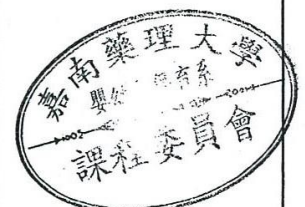 嘉南藥理大學
嬰幼 育系
課程委員會